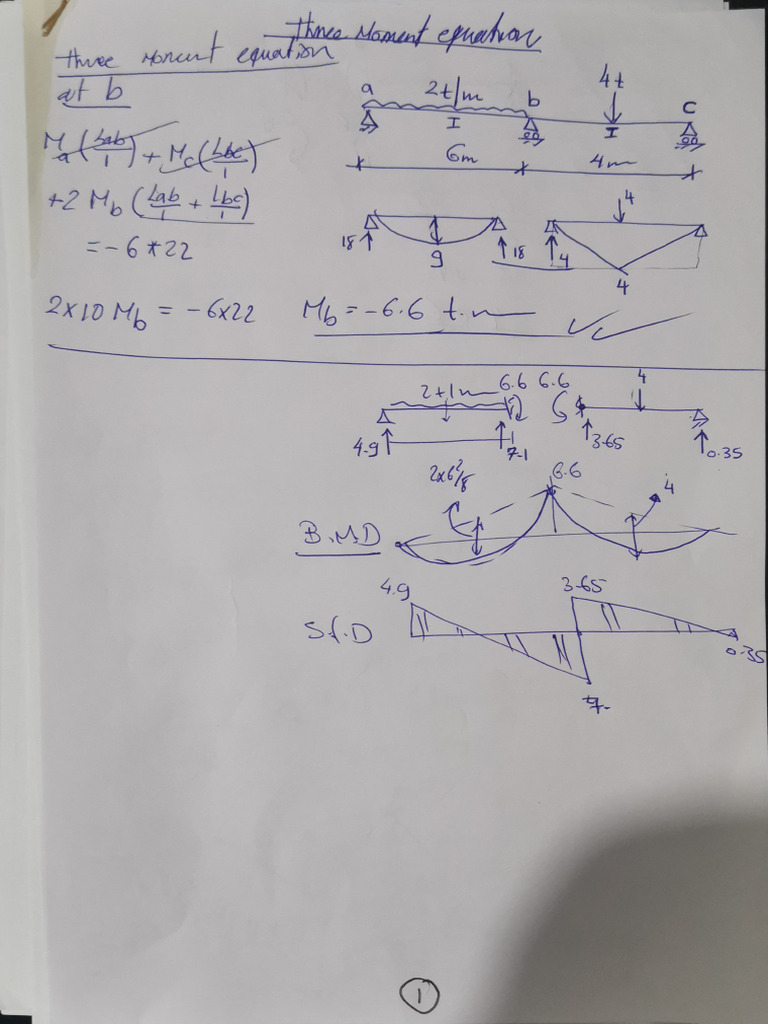 Three Moment equation
three Moment equation
at b
Ma (Lab/I) + Mc (Lbc/I)
+2 Mb (Lab/I + Lbc/I)
= -6 * 22
2x10 Mb = -6x22
Mb = -6.6 t.m
a
2t/m
b
4t
c
I
I
6m
4m
18
9
18
4
4
4
2t/m
6.6
6.6
4
4.9
7.1
3.65
0.35
2x6²/8
6.6
4
B.M.D
4.9
3.65
S.f.D
0.35
7-
1